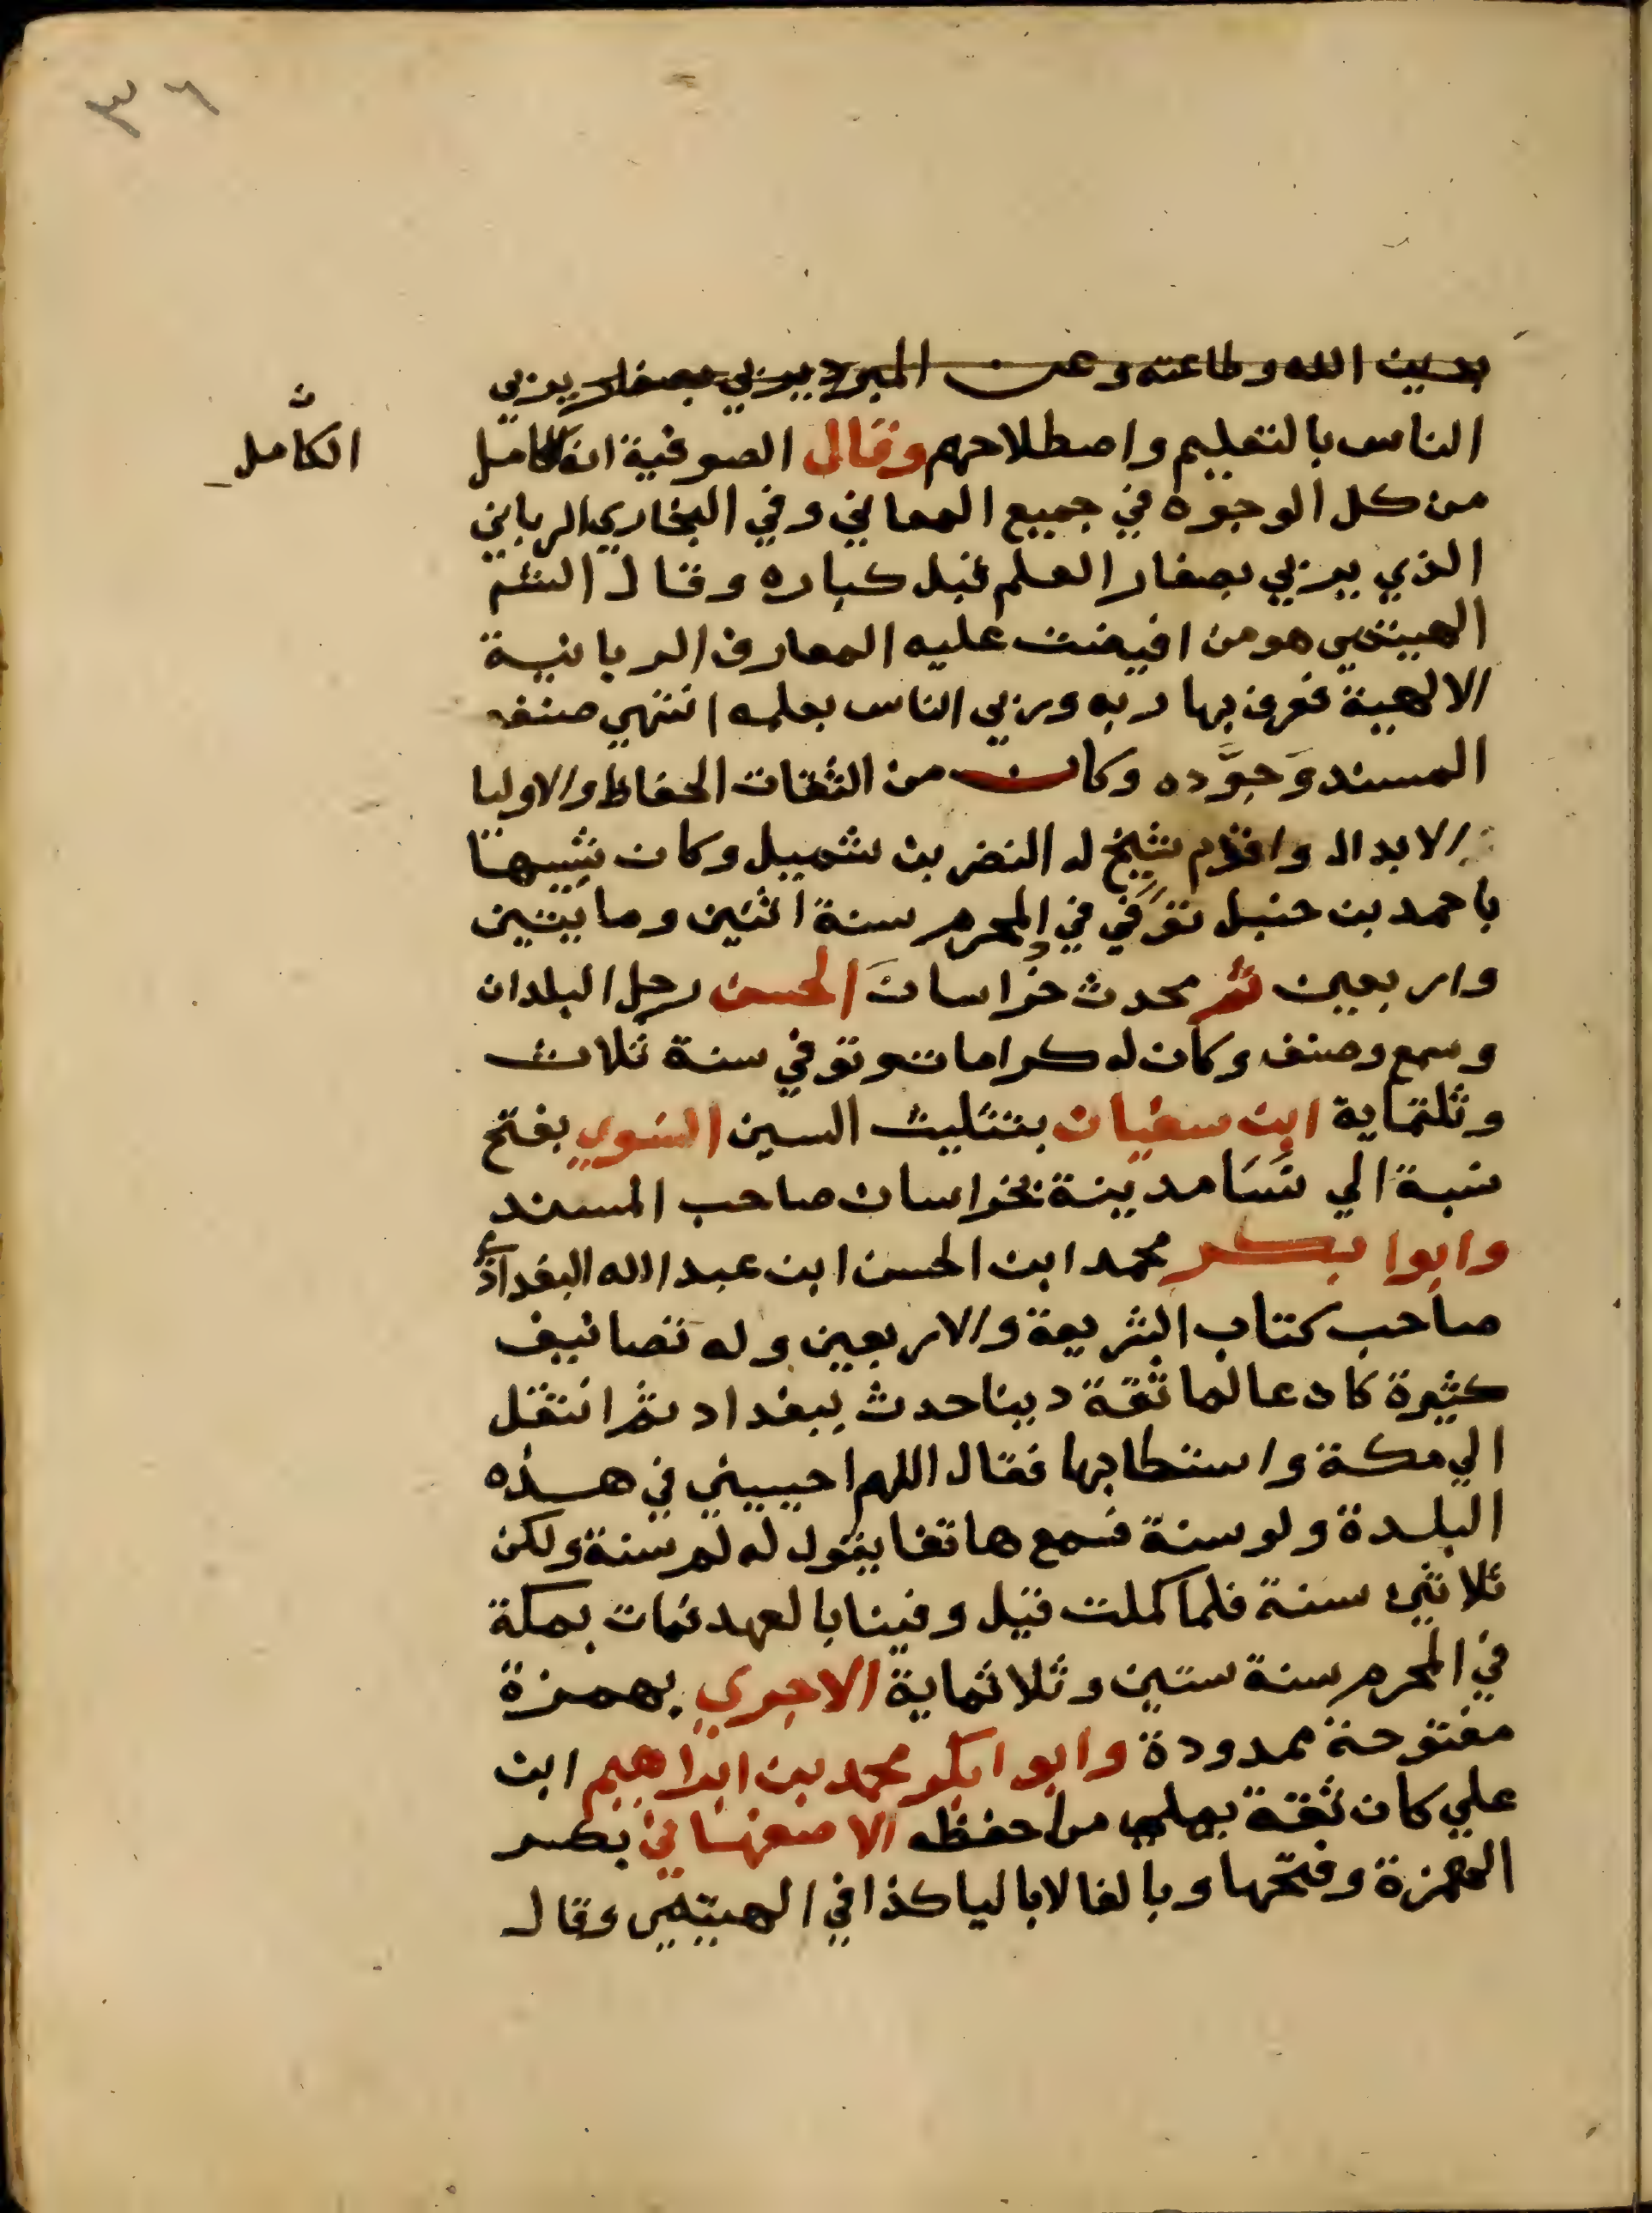 ٣٦
بدين الله وطاعته وعن المبرد يربي بصغار يربي
الناس بالتعليم واصطلاحهم وقال الصوفية انه الكامل
ن
الكامل
من كل الوجوه في جميع المعاني وفي البخاري الرباني
الذي يربي بصغار العلم قبل كباره وقال
الهيتمي هو من افيضت عليه المعارف الربانية
الالهية فعرف بها ربه وربي الناس بعلمه انتهي صنف
المسند وَجوَّده وكان من الثقات الحفاظ والاوليا
الابدال واقدم شيخ له النضر بن شميل وكان شبيها
باحمد بن حنبل توَفي في المحرم سنة اثنين ومايتين
واربعين ثم محدث خراسان الحسن رحل البلدان
وسمع وصنف وكان له كرامات وتوفي سنة ثلاث
وثلثماية ابن سفيان بتثليث السين النسوي بفتح
نسبة الي نَسَا مدينة بخراسان صاحب المسند
وابوا بكر محمد ابن الحسن ابن عبد الله البغدادي
صاحب كتاب الشريعة والاربعين وله تصانيف
كثيرة كان عالما ثقة دينا حدث ببغداد ثم انتقل
الي مكة واستطابها فقال اللهم احييني في هذه
البلدة ولو سنة فسمع هاتفا يقول له لم سنة ولكن
ثلاثين سنة فلما كملت قيل وفينا بالعهد فمات بمكة
في المحرم سنة ستين وثلاثماية الاجري بهمزة
مفتوحة ممدودة وابوا بكر محمد بن ابراهيم ابن
علي كان ثقة يملي من حفظه الاصفهاني بكسر
الهمزة وفتحها وبالفا لا باليا كذا في الهيتمي وقال